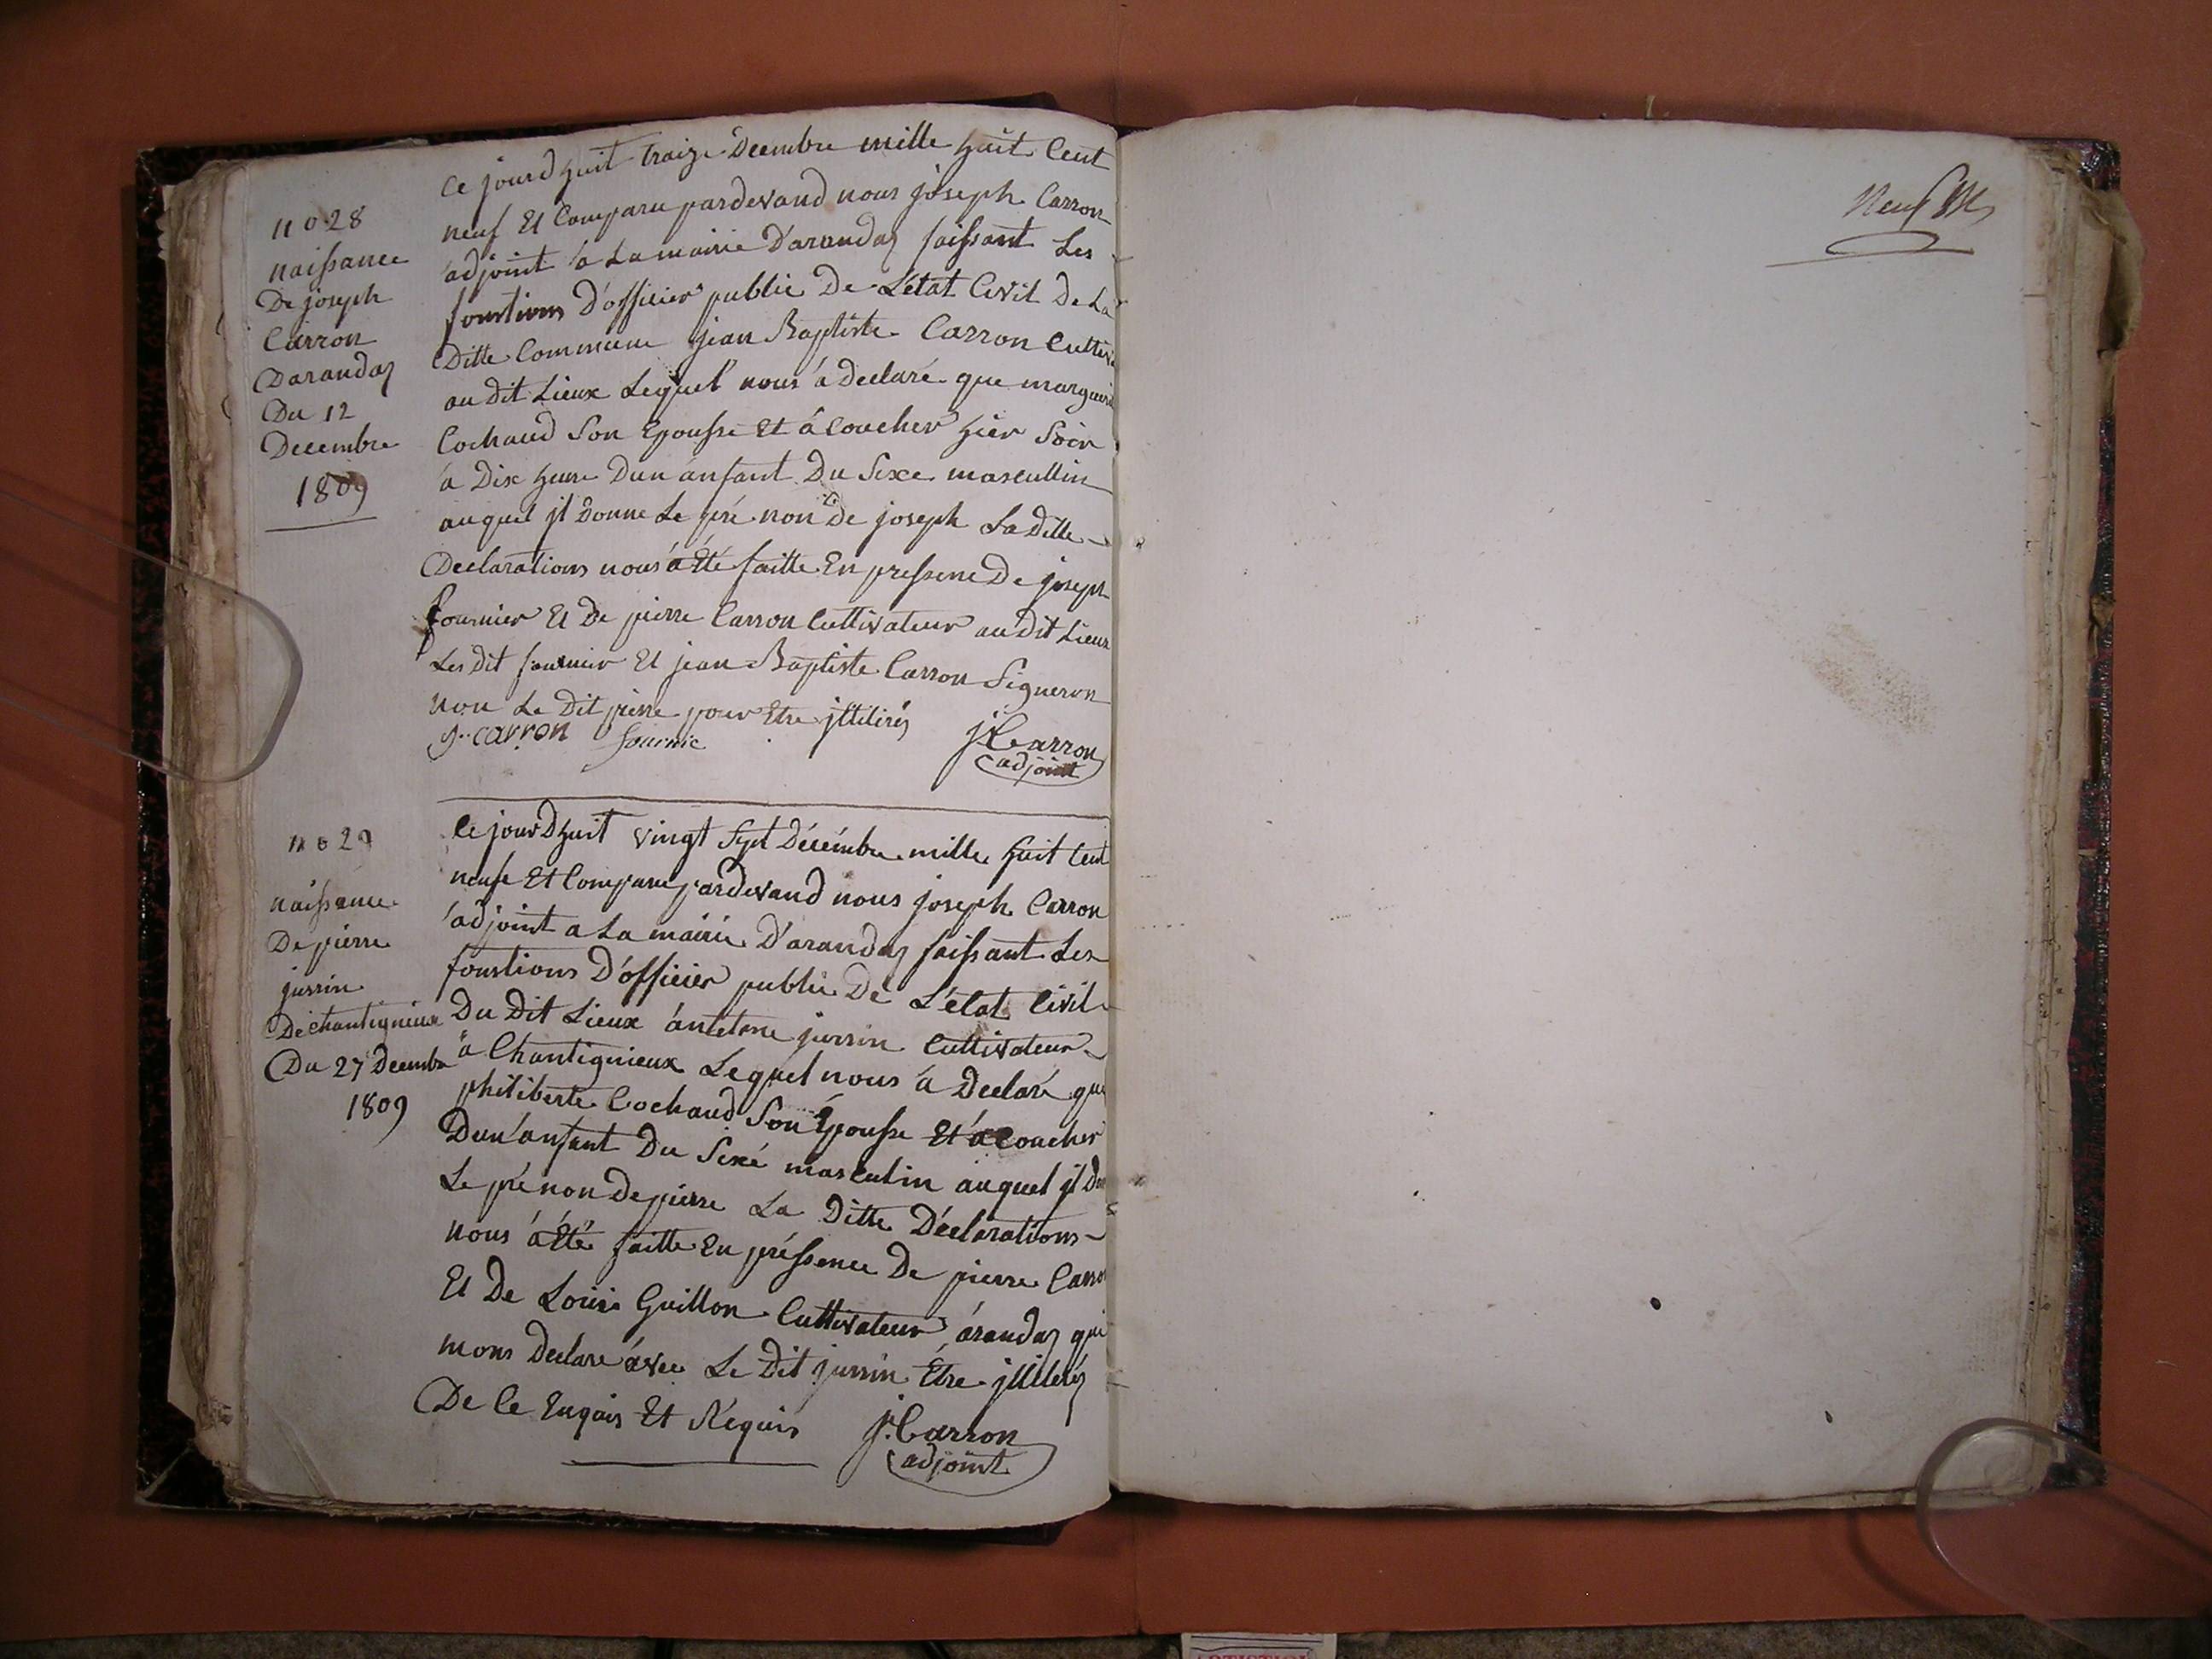 n o 28
naissance
De joseph
Carron
Darandas
Du 12
Decembre
1809
Ce jourd huit traize Decembre mille huit Cent
neuf Et Comparu pardevand nous joseph Carron
adjoint à La mairie D'arandas faissant Les
fonctions D'officier public De L'état Civil De La
Ditte Commune jean Baptiste Carron Cultiv
au dit Lieux Lequel nous à Declaré que marguerit
Cochaud Son Epousse Et àCoucher hier Soir
à Dix heure Dun anfant Du Sexe mascullin
auquel jl Donne Le pré non De joseph La Ditte
Declarations nous à Eté faitte En pressence De joseph
fournier Et De pierre Carron Cultivateur au dit Lieux
Les dit fournier Et jean Baptiste Carron Signeron
non Le Dit pierre pour Etre jllitirés
j. carron fournie
j. Carron
adjoint
n o 29
naissance
De pierre
jurrin
De chantignieux
Du 27 Decembre
1809
Ce jourDhuit vingt Sept Décémbre mille huit Cent
neufe Et Comparu pardevand nous joseph Carron
adjoint a La mairie D'arandas faissant Les
fonctions D'officier public De L'état Civil
Du Dit Lieux ántelme jurrin Cultivateur
à Chantignieux Lequel nous à Declaré que
philiberte Cochaud Son Epousse Et àCoucher
Dun'anfant Du Sexé masculin auquel jl Don
Le pré non De pierre La Ditte Déclarations
nous à Eté faitte En préssence De pierre Carron
Et De Louis Guillon Cultivateur árandas qui
mons Declare ávec Le Dit jurrin Étre jllilerés
De Ce Enqais Et Réquis
j. Carron
adjoint
Neuf